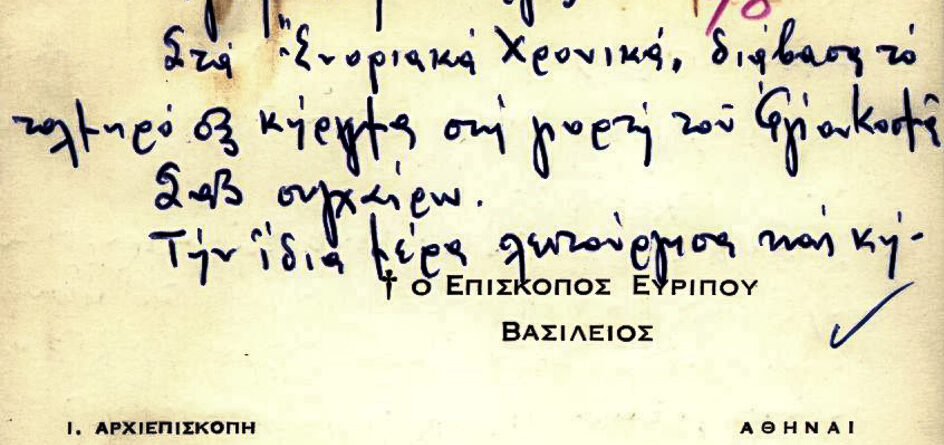 Στά "Ἐνοριακά Χρονικά, διάβασα τό
τολμηρό σας κήρυγμα στή γιορτή τοῦ Ἁγίου Κοσμᾶ
Σᾶς συγχαίρω.
Τήν ἴδια μέρα λειτούργησα καί κή-
† Ο ΕΠΙΣΚΟΠΟΣ ΕΥΡΙΠΟΥ
ΒΑΣΙΛΕΙΟΣ
Ι. ΑΡΧΙΕΠΙΣΚΟΠΗ
ΑΘΗΝΑΙ